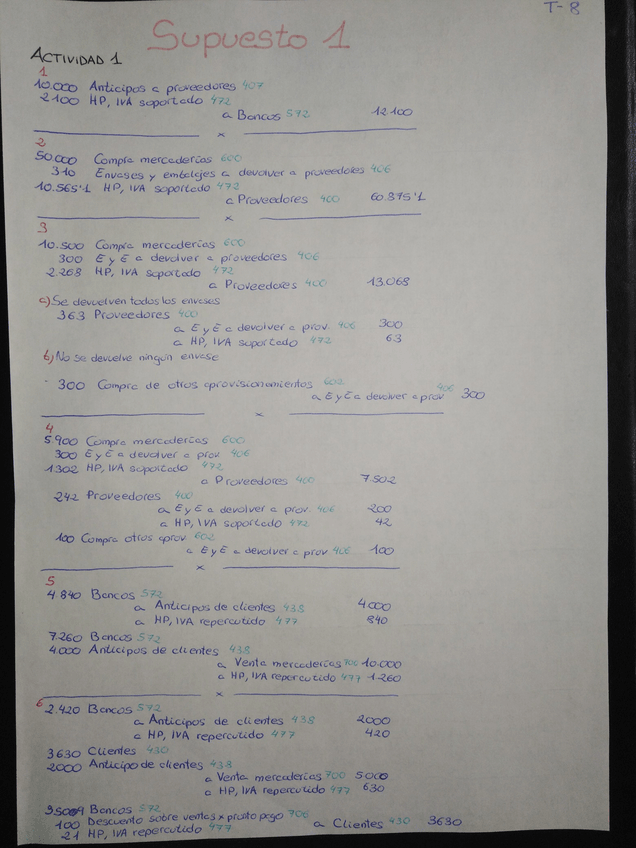 T-8
Supuesto 1
ACTIVIDAD 1
1
10.000 Anticipos a proveedores 407
2100 HP, IVA soportado 472
a Bancos 572 12100
x
2
50.000 Compra mercaderías 600
310 Envases y embalajes a devolver a proveedores 406
10.565'1 HP, IVA soportado 472
a Proveedores 400 60.875'1
x
3
10.500 Compra mercaderías 600
300 E y E a devolver a proveedores 406
2.268 HP, IVA soportado 472
a Proveedores 400 13.068
a) Se devuelven todos los envases
363 Proveedores 400
a E y E a devolver a prov. 406 300
a HP, IVA soportado 472 63
b) No se devuelve ningún envase
300 Compra de otros aprovisionamientos 602
a E y E a devolver a prov 406 300
x
4
5.900 Compra mercaderías 600
300 E y E a devolver a prov. 406
1302 HP, IVA soportado 472
a Proveedores 400 7.502
242 Proveedores 400
a E y E a devolver a prov. 406 200
a HP, IVA soportado 472 42
100 Compra otros aprov 602
a E y E a devolver a prov 406 100
x
5
4.840 Bancos 572
a Anticipos de clientes 438 4.000
a HP, IVA repercutido 477 840
7.260 Bancos 572
4.000 Anticipos de clientes 438
a Venta mercaderías 700 10.000
a HP, IVA repercutido 477 1.260
x
6
2.420 Bancos 572
a Anticipos de clientes 438 2000
a HP, IVA repercutido 477 420
3630 Clientes 430
2000 Anticipo de clientes 438
a Venta mercaderías 700 5000
a HP, IVA repercutido 477 630
Bancos 572
100 Descuento sobre ventas x pronto pago 706
21 HP, IVA repercutido 477 a Clientes 430 3630